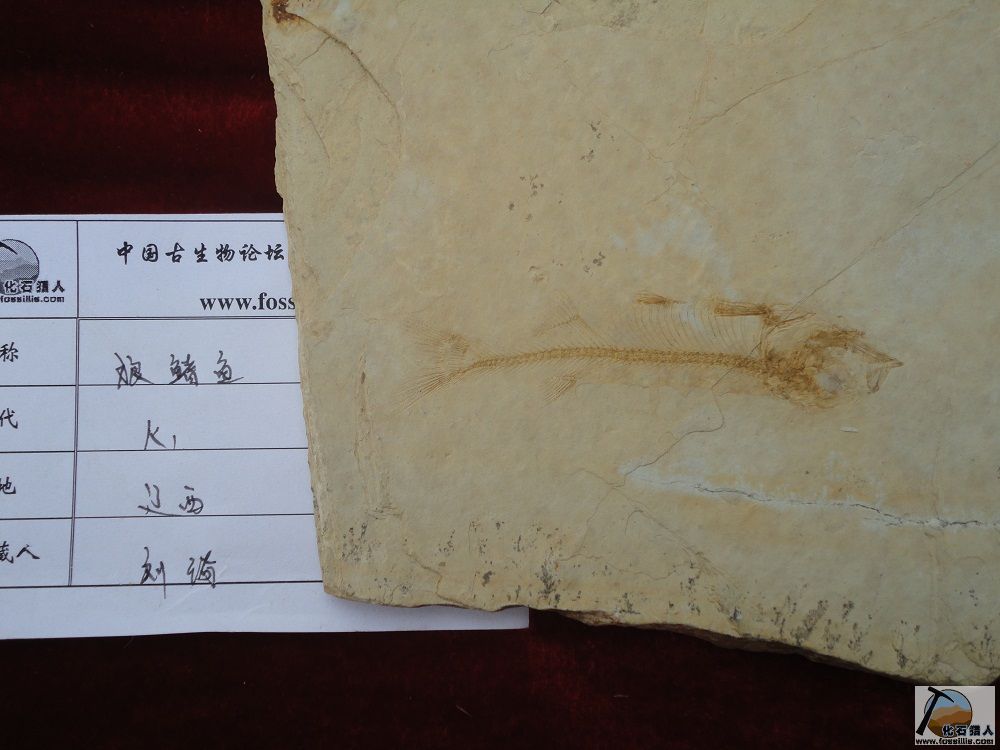 中国古生物论坛
化石猎人
fossillis.com
www.foss
称
狼鳍鱼
代
K1
地
辽西
藏人
刘
化石猎人
www.fossillis.com